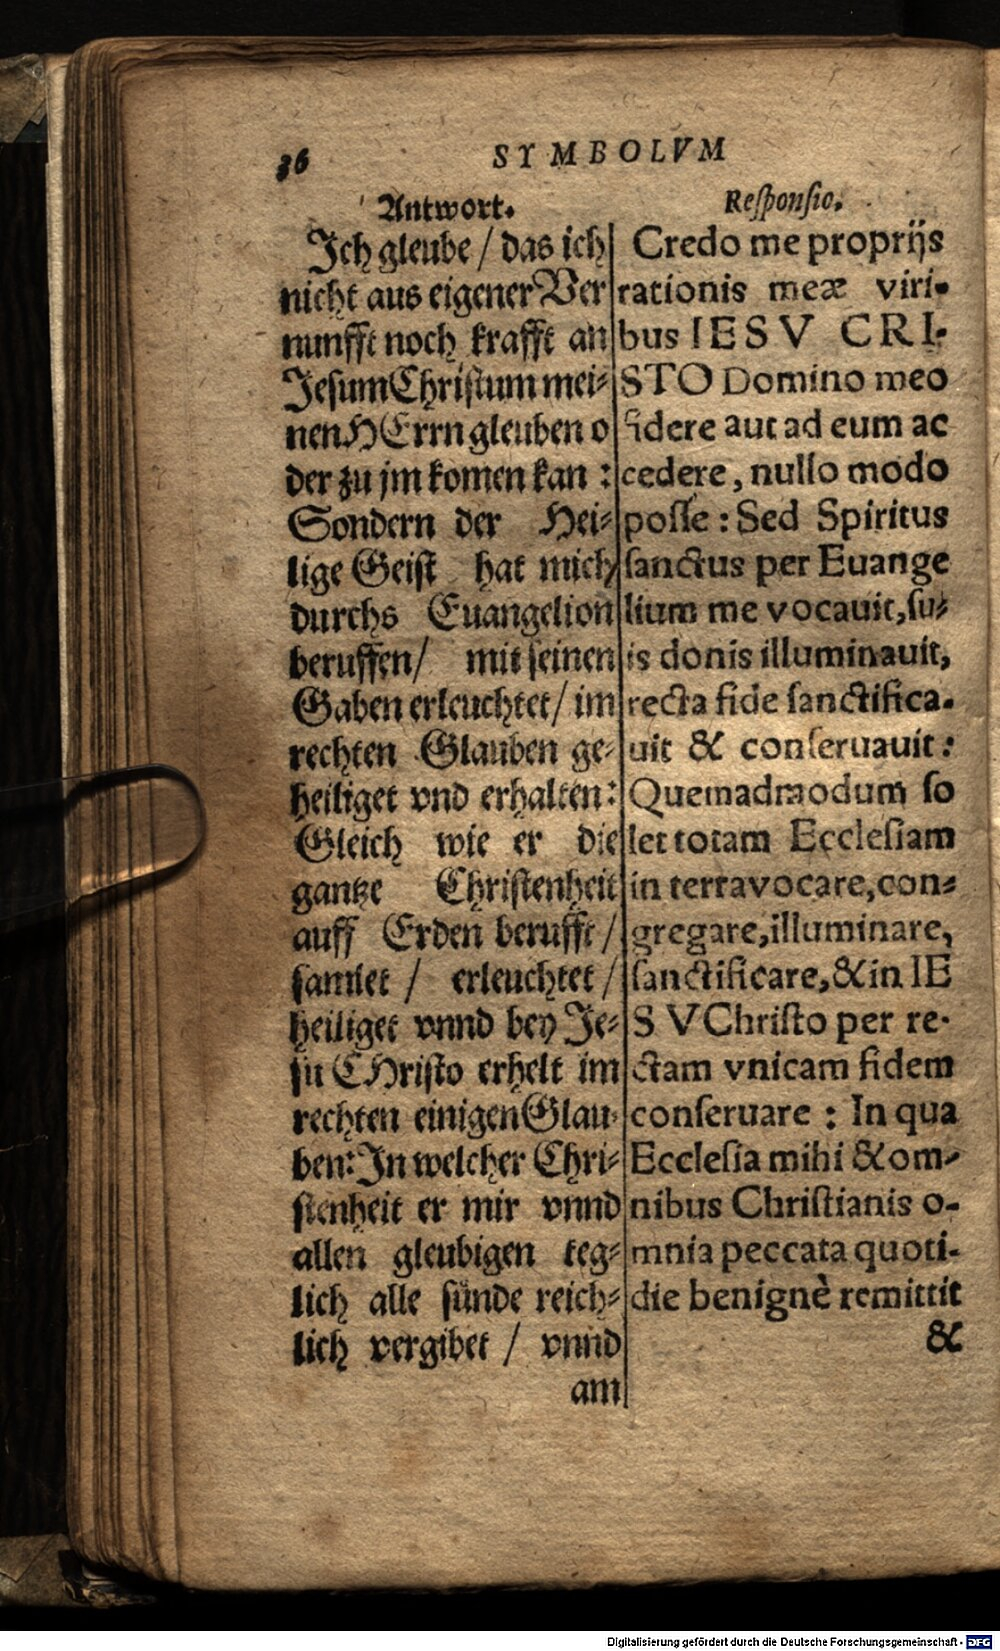 36
SYMBOLVM
Antwort.
Jch gleube / das ich
nicht aus eigener Ver
nunfft noch krafft an
Jesum Christum mei⸗
nen HErrn gleuben o
der zu jm komen kan :
Sondern der Hei⸗
lige Geist hat mich
durchs Euangelion
beruffen / mit seinen
Gaben erleuchtet / im
rechten Glauben ge⸗
heiliget vnd erhalten:
Gleich wie er die
gantze Christenheit
auff Erden berufft /
samlet / erleuchtet /
heiliget vnnd bey Je⸗
su CHristo erhelt im
rechten einigen Glau⸗
ben: In welcher Chri⸗
stenheit er mir vnnd
allen gleubigen teg⸗
lich alle sünde reich⸗
lich vergibet / vnnd
am
Responsio.
Credo me proprijs
rationis meæ viri-
bus IESV CRI-
STO Domino meo
fidere aut ad eum ac
cedere, nullo modo
posse : Sed Spiritus
sanctus per Euange
lium me vocauit, su-
is donis illuminauit,
recta fide sanctifica-
uit & conseruauit :
Quemadmodum so
let totam Ecclesiam
in terra vocare, con-
gregare, illuminare,
sanctificare, & in IE
SV Christo per re-
ctam vnicam fidem
conseruare : In qua
Ecclesia mihi & om-
nibus Christianis o-
mnia peccata quoti-
die benignè remittit
&
Digitalisierung gefördert durch die Deutsche Forschungsgemeinschaft - DFG